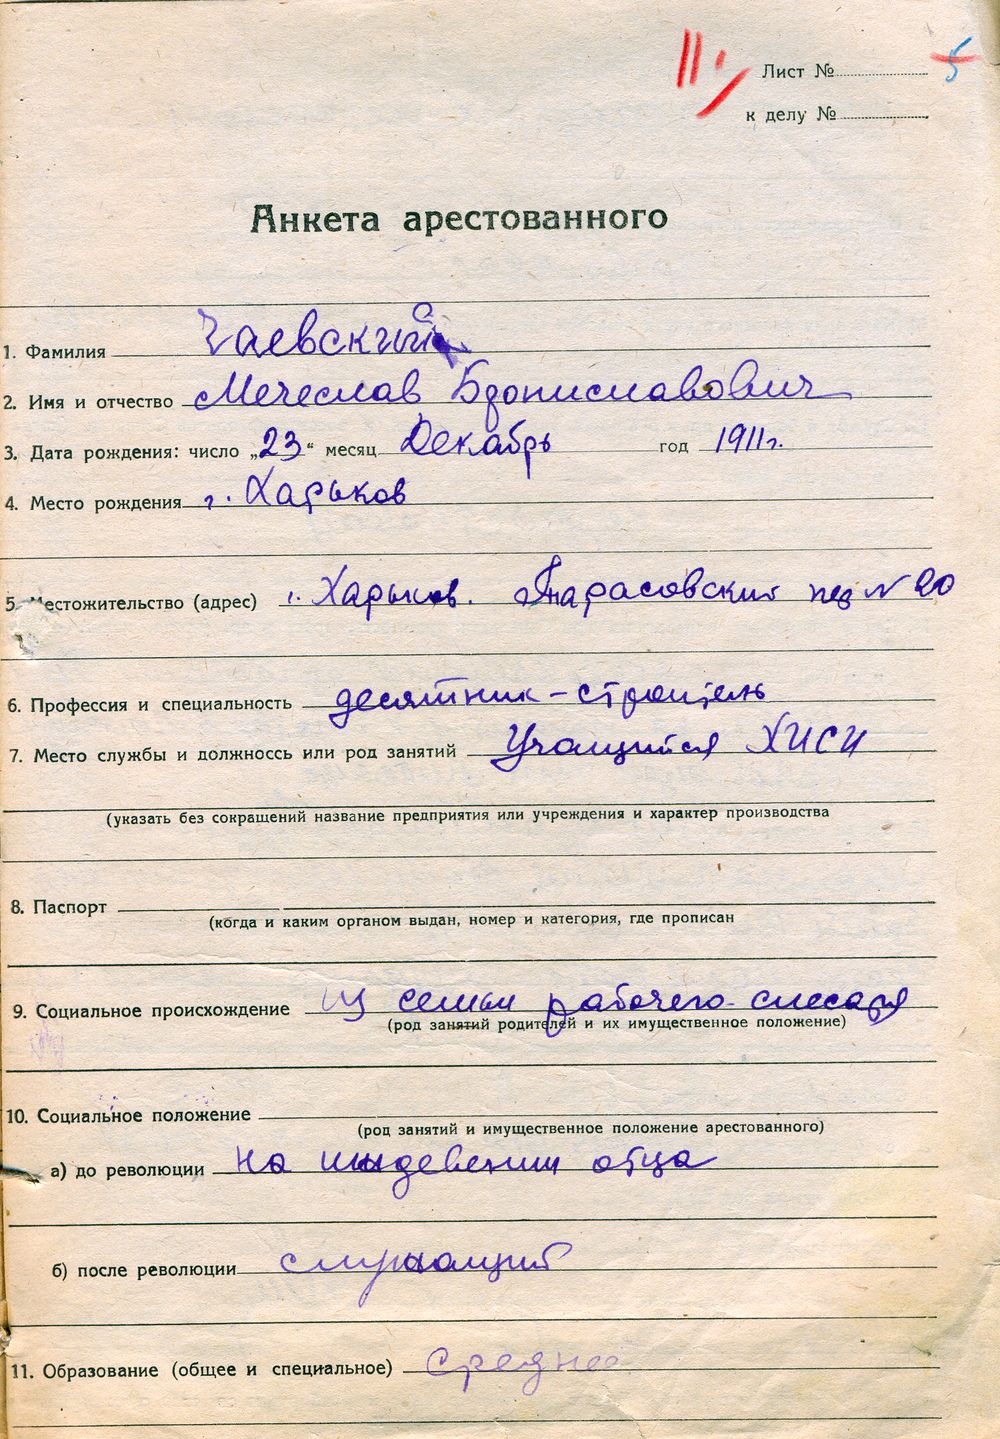 11.
5
Лист №
к делу №
Анкета арестованного
1. Фамилия Чаевский
2. Имя и отчество Мечеслав Брониславович
3. Дата рождения: число „23“ месяц Декабрь год 1911г.
4. Место рождения г. Харьков
5. Местожительство (адрес) г. Харьков. Тарасовский пер № 20
6. Профессия и специальность десятник-строитель
7. Место службы и должноссь или род занятий Учащийся ХИСИ
(указать без сокращений название предприятия или учреждения и характер производства
8. Паспорт
(когда и каким органом выдан, номер и категория, где прописан
9. Социальное происхождение из семьи рабочего-слесаря
(род занятий родителей и их имущественное положение)
10. Социальное положение
(род занятий и имущественное положение арестованного)
а) до революции на иждевении отца
б) после революции служащий
11. Образование (общее и специальное) среднее